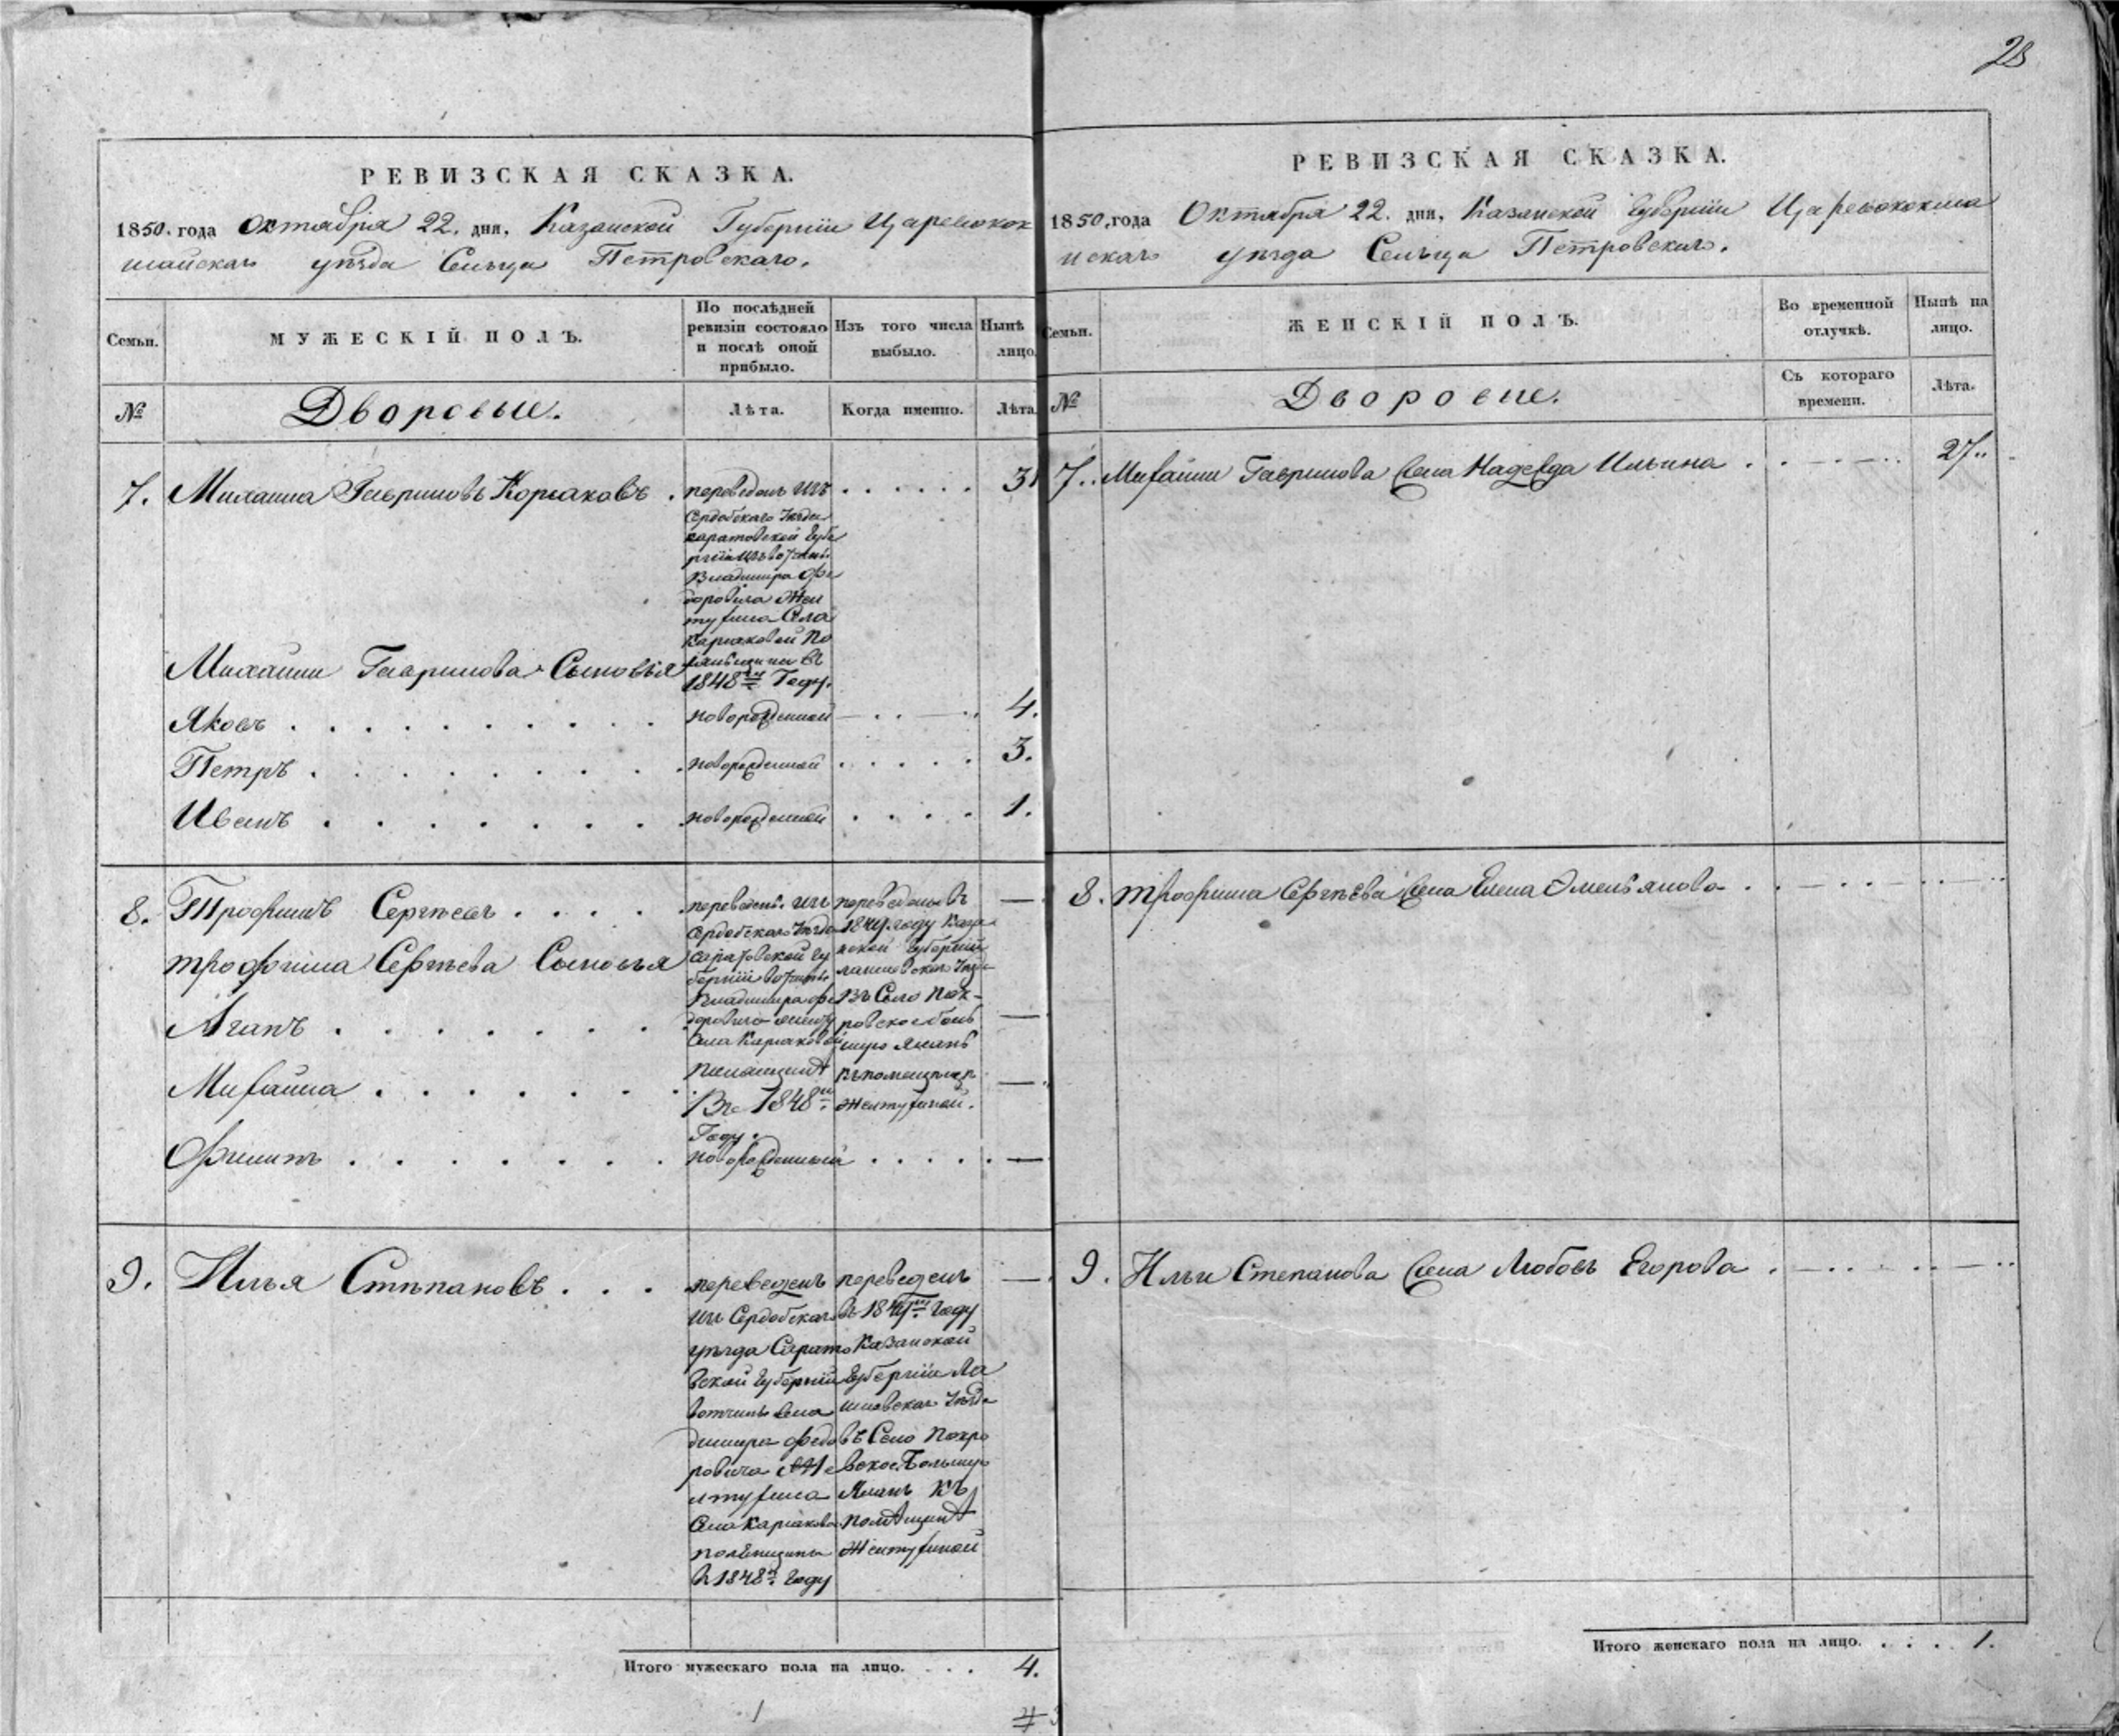 28
РЕВИЗСКАЯ СКАЗКА.
1850. года Октября 22. дня, Казанской Губерніи Царевокок
шайскаго уѣзда Сельца Петровскаго.
Семьи.
МУЖЕСКІЙ ПОЛЪ.
По послѣдней
ревизіи состояло
и послѣ оной
прибыло.
Изъ того числа
выбыло.
Нынѣ
лицо.
№
Дворовые.
Лѣта.
Когда именно.
Лѣта.
7. Михаила Гавриловъ Корсаковъ . переведенъ изъ . . . . . . 31
Сердобскаго Уѣзда
Саратовской Губе
рніи изъ вотчины
Владимира Фе
доровича Жел
тухина Села
По
въ
Михайлы Гаврилова Сыновья
1848м Году.
Яковъ . . . . . . . . . новорожденной 4.
Петръ . . . . . . . . новорожденной . . . . . 3.
Иванъ . . . . . . . . новорожденной . . . . 1.
8. Трофимъ Сергѣевъ . . . . переведенъ изъ
Сердобскаго Уѣзда
Трофима Сергѣева Сыновья
Саратовской Гу
берніи вотчины
Владимира Фе
Агапъ . . . . . . .
Михайла . . . . . . .
Въ 1848м
Году.
переведенъ въ
1849 году Каза
нской Губерніи
Лаишевскаго Уѣзда
Въ Село Пок-
ровское
къ помещице
Желтухиной.
Филипъ . . . . . . . новорожденный . . . . . —
9. Илья Стѣпановъ . . .
переведенъ
изъ Сердобскаго
уѣзда Сарато
вской Губерніи
вотчины Вла
димира Федо
ровича Же
лтухина
Села
въ 1848м Году
переведенъ
въ 1849м Году
Казанской
Губерніи Ла
ишевскаго Уѣзда
въ Село Покро
вское
къ
Желтухиной
Итого мужескаго пола на лицо. . . . 4.
РЕВИЗСКАЯ СКАЗКА.
1850. года Октября 22. дня, Казанской Губерніи Царевококша
йскаго уѣзда Сельца Петровскаго.
Семьи.
ЖЕНСКІЙ ПОЛЪ.
Во временной
отлучкѣ.
Нынѣ на
лицо.
№
Дворовые.
Съ котораго
времени.
Лѣта.
7. Михайлы Гаврилова жена Надежда Ильина . 27
8. Трофима Сергѣева жена Елена Эмельянова
9. Ильи Степанова жена Любовь Егорова .
Итого женскаго пола на лицо. . . . 1.